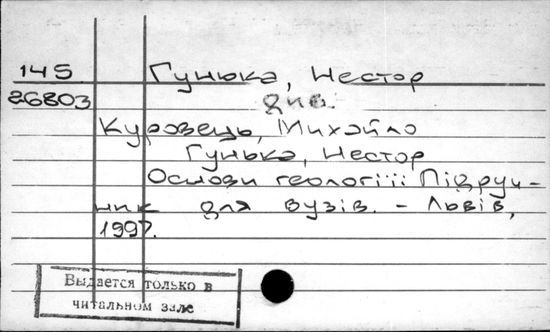 145 Гунька, Нестор
26803 див.
Куровець, Михайло
Гунька, Нестор
Основи геології: Підруч-
ник для вузів. – Львів,
1997.
Выдается только в
читальном зале